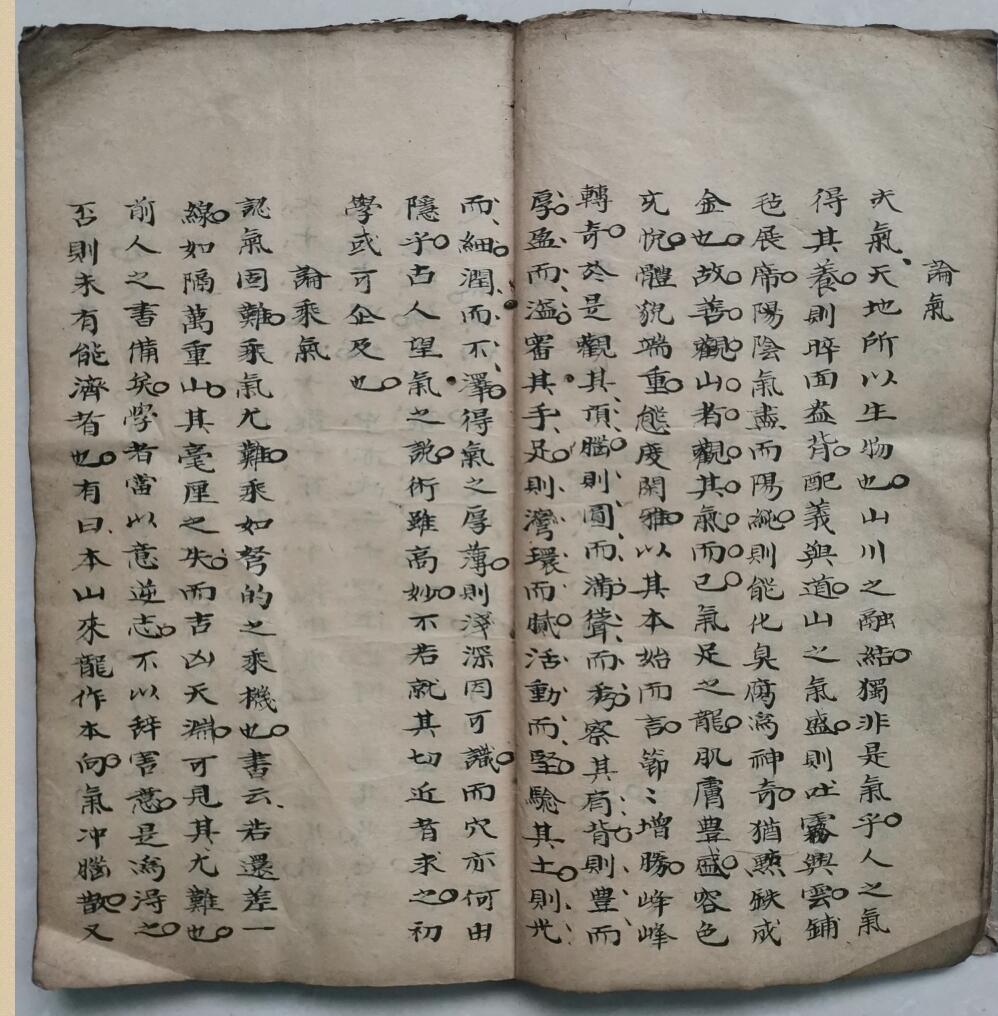 論氣
夫氣天地所以生物也山川之融結獨非是氣乎人之氣
得其養則睟面盎背配義與道山之氣盛則吐霧興雲鋪
毡展席陽陰氣盡而陽純則能化臭腐為神奇猶點鉄成
金也故善觀山者觀其氣而已氣足之龍肌膚豊盛容色
充悅體貌端重態度閑雅以其本始而言節〻增勝峰峰
轉奇於是觀其頂腦則圓而滿聳而秀察其肩背則豊而
厚盈而溢審其手足則灣環而膩活動而堅驗其土則光
而細潤而不澤得氣之厚薄則淺深因可識而穴亦何由
隱乎古人望氣之說術雖高妙不若就其切近者求之初
學或可企及也
論乘氣
認氣固難乘氣尤難乘如弩的之乘機也書云若還差一
線如隔萬重山其毫厘之失而吉凶天淵可見其尤難也
前人之書備矣學者當以意逆志不以辞害意是為得之
否則未有能濟者也有曰本山來龍作本向氣冲腦散又